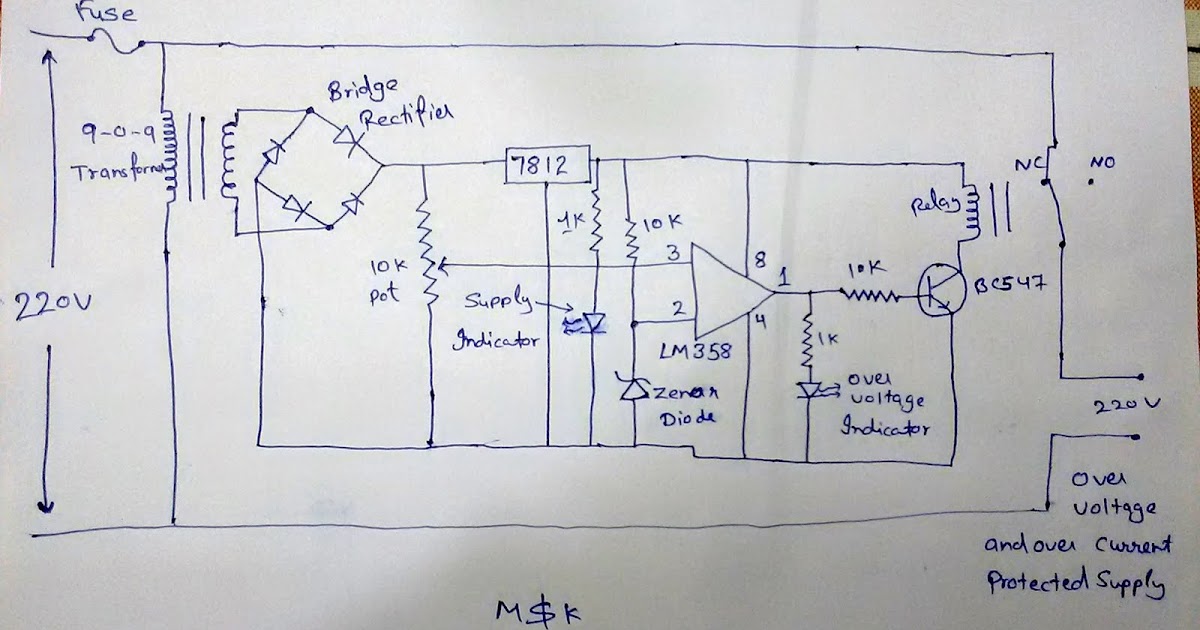 Fuse
Bridge
Rectifier
9-0-9
Transformer
7812
NC
NO
Relay
1K
10K
3
8
10K
pot
1
10K
BC547
Supply
Indicator
2
4
220V
LM358
1K
Zenar
Diode
Over
voltage
Indicator
220V
Over
voltage
and over current
Protected Supply
M$K